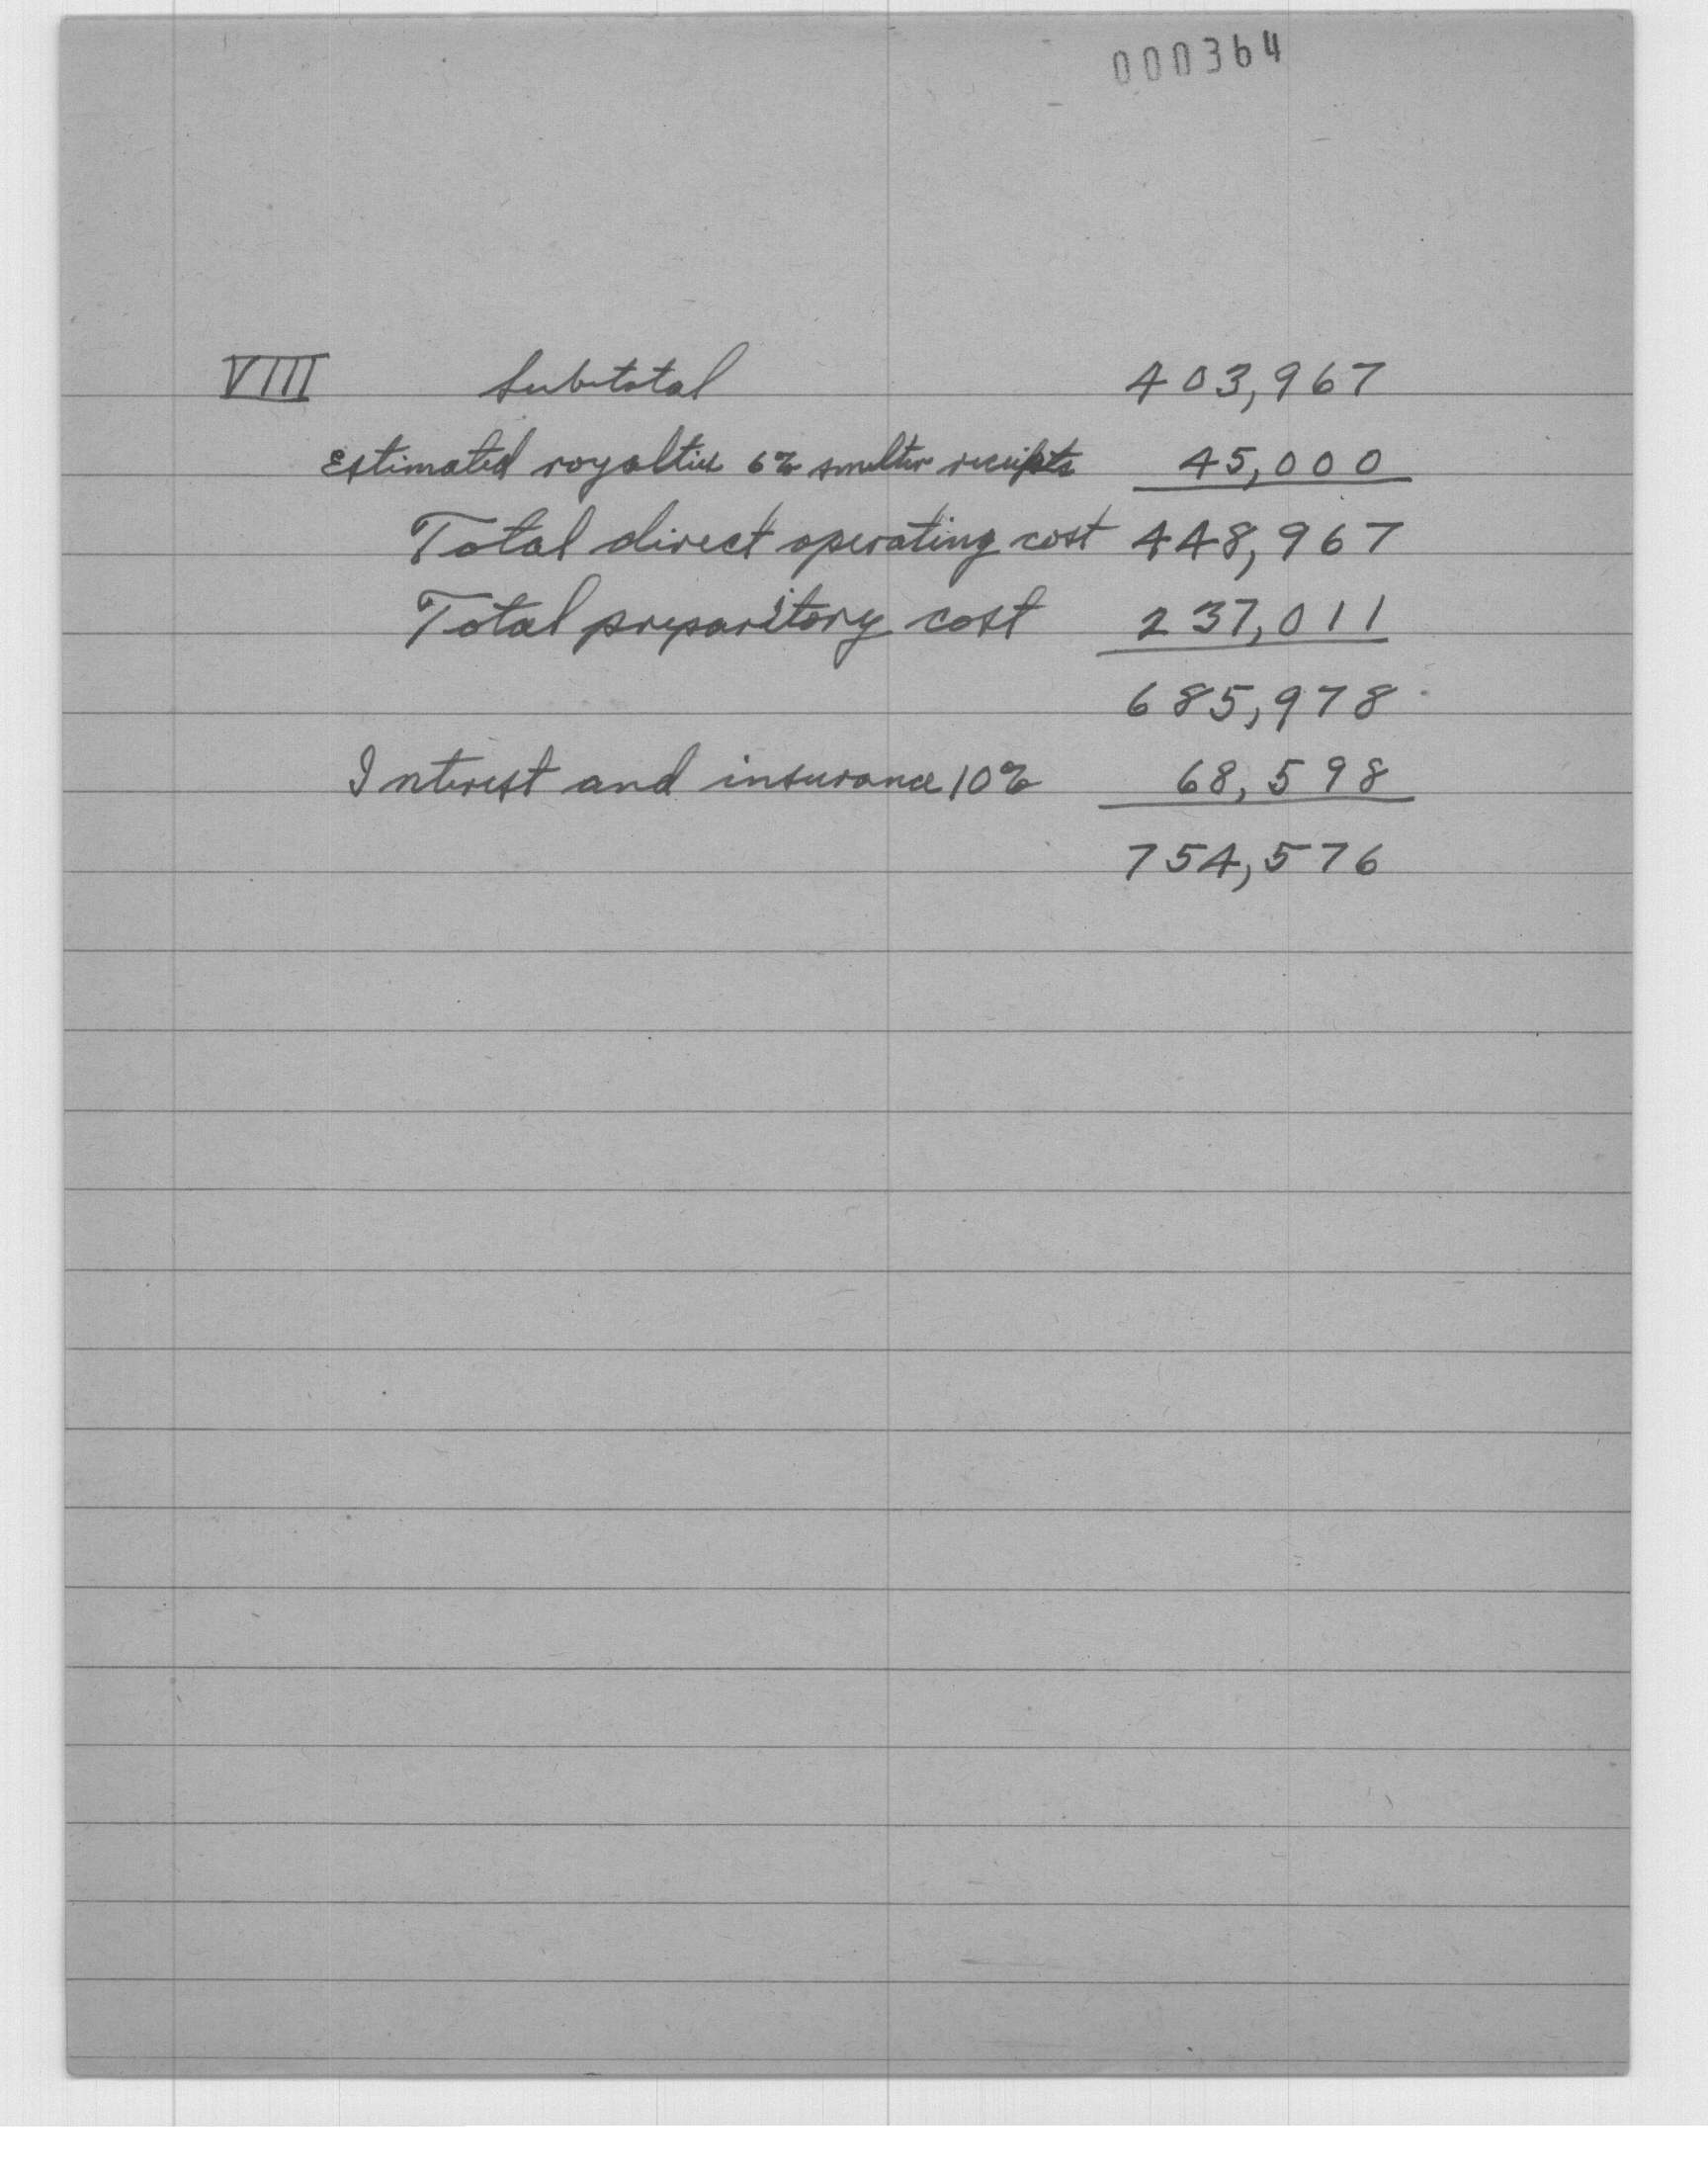 000364
VIII Subtotal 403,967
Estimated royalties 6% smelter receipts 45,000
Total direct operating cost 448,967
Total preparitory cost 237,011
685,978
Interest and insurance 10% 68,598
754,576